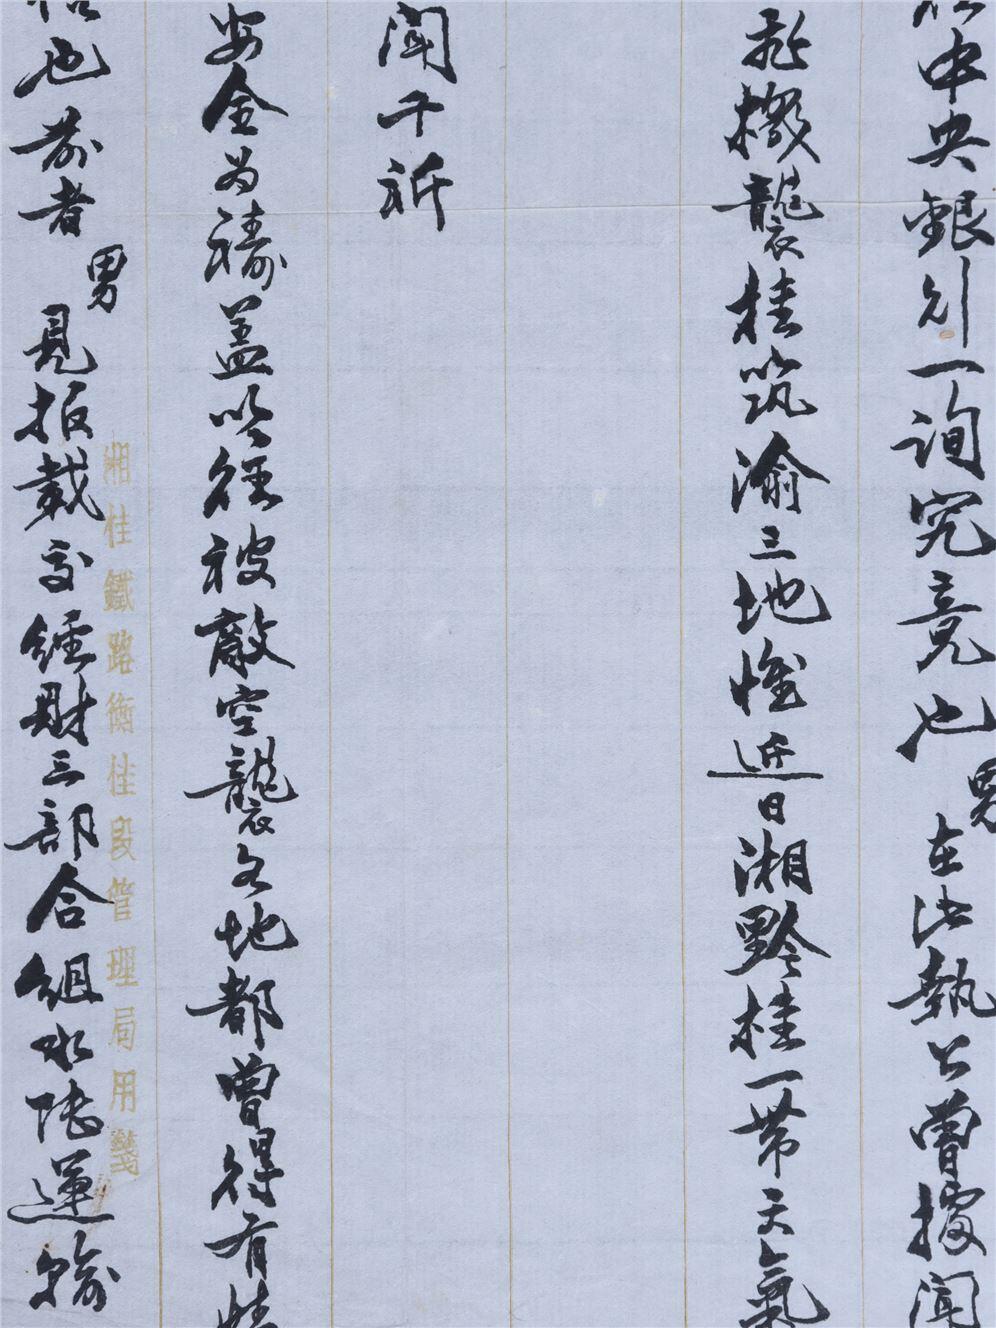 中央銀行一詢究竟也男在此執公曾據聞
飛機襲桂筑渝三地惟近日湘黔桂一帶天氣
聞千祈
安全為禱蓋以徃被敵空襲之地都曾得有情
也前者男見报載交經財三部合組水陸運輸
湘桂鐵路衡桂段管理局用箋